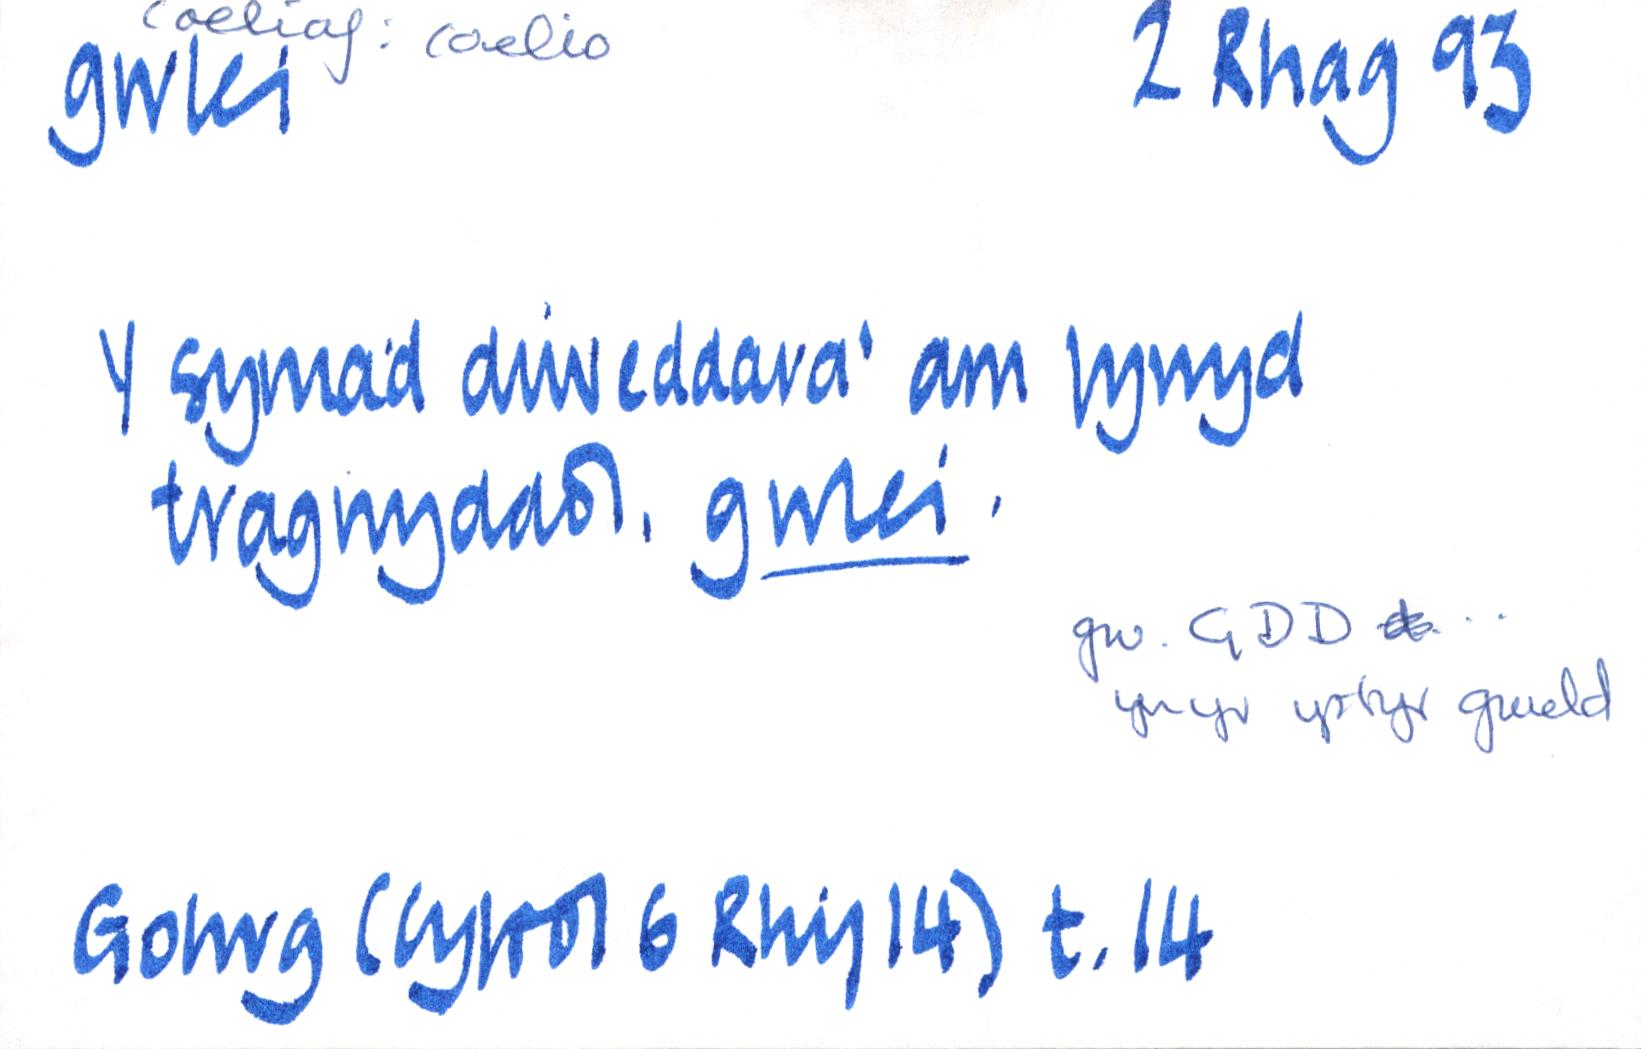 coeliaf: coelio
gwlei 2 Rhag 93
Y symad diweddara' am fywyd
tragwyddol, gwlei.
gw. GDD ...
yn yr ystyr gweld
(Cyfrol 6 Rhif 14) t. 14